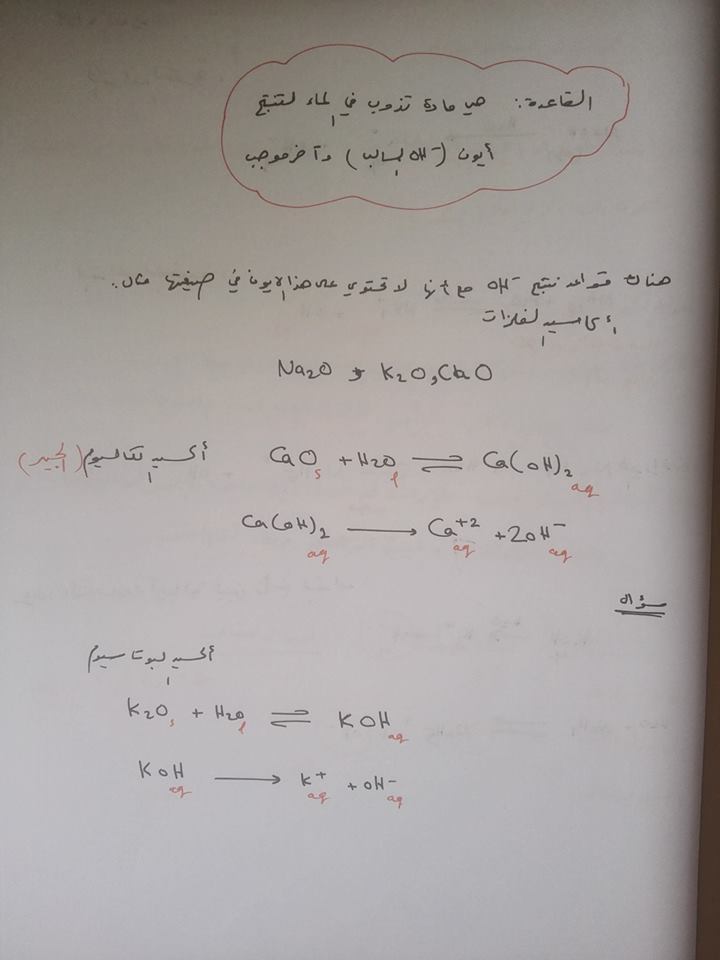 القاعدة: هي مادة تذوب في الماء لتنتج
أيون (OH⁻ السالب) وآخر موجب
هناك قواعد تنتج OH⁻ مع أنها لا تحتوي على هذا الايون في صيغتها مثال..
أكاسيد الفلزات
Na2O و K2O, CaO
أكسيد الكالسيوم (الجير) CaO s + H2O l ⇌ Ca(OH)2 aq
Ca(OH)2 aq → Ca+2 aq + 2OH⁻ aq
سؤال
أكسيد البوتاسيوم
K2O s + H2O l ⇌ KOH aq
KOH aq → K+ aq + OH⁻ aq